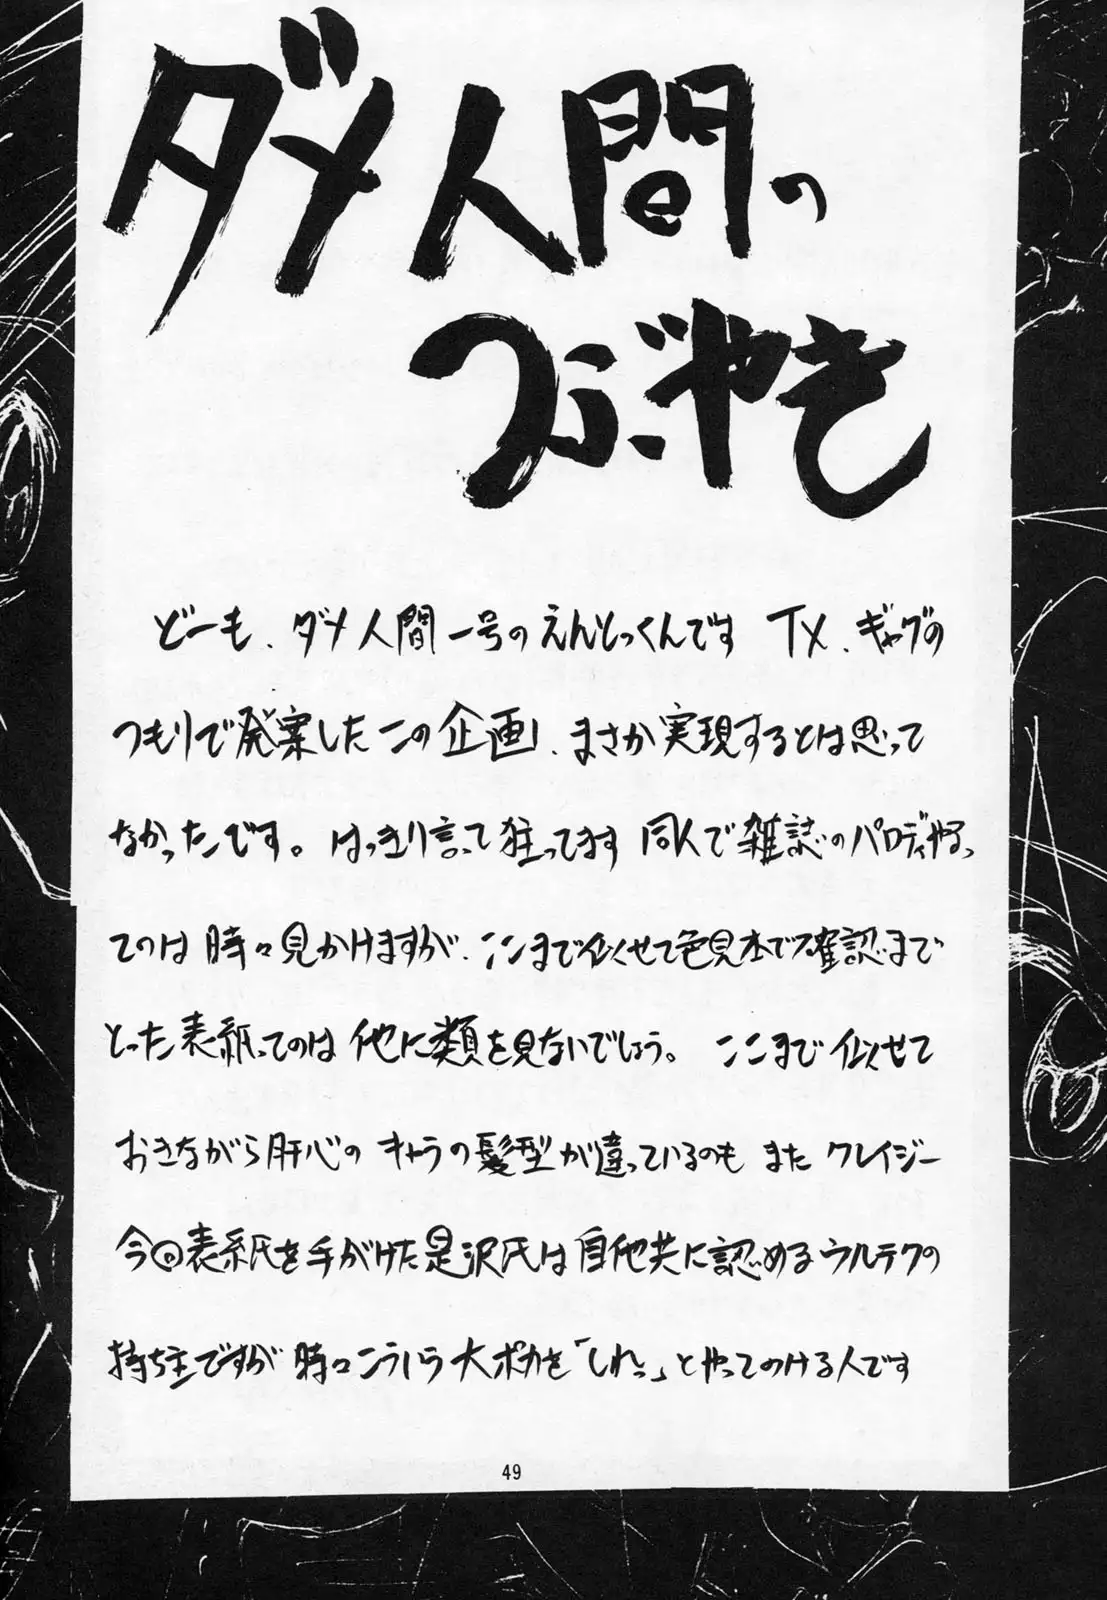 ダメ人間の
つぶやき
どーも、ダメ人間一号のえんとっくんです TX、ギャグの
つもりで発案したこの企画、まさか実現するとは思って
なかったです。はっきり言って狂ってます 同人で雑誌のパロディやっ
てのは時々見かけますが、ここまで似せて色見本で確認まで
とった表紙ってのは他に類を見ないでしょう。ここまで似せて
おきながら肝心のキャラの髪型が違っているのもまたクレイジー
今回表紙を手がけた是沢氏は自他共に認めるウルテクの
持ち主ですが時々こういう大ポカを「しれっ」とやってのける人です
49